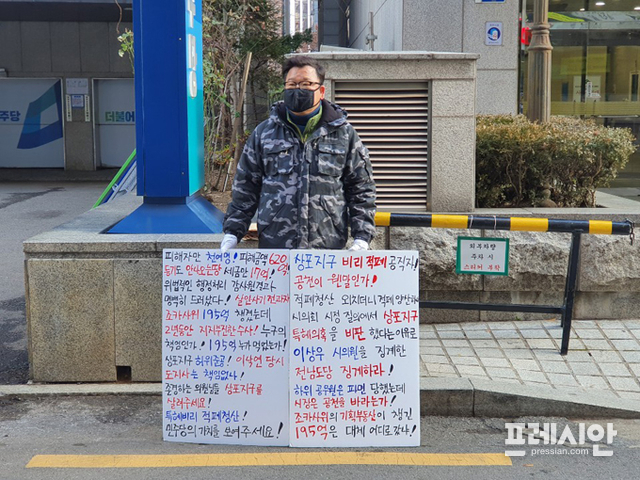 주당
더불어
피해자만 천여명! 피해금액 620억!
등기도 안나오는땅 세금만 17억!
위법적인 행정처리 감사원결과
명백히 드러났다!
조카사위 195억 챙겼는데
2년동안 지지부진한 수사! 누구의
책임인가! 195억 누가 먹었는가!
상포지구 허위준공! 이상연 당시
도지사는 책임없나!
존경하는 의원님들 상포지구를
살려주세요!
특혜비리 적폐청산!
민주당의 가치를 보여주세요!
상포지구 비리 적폐 공직자!
공천이 웬말인가!
적폐청산 외치더니 적폐 양산하나
시의회 시정 질의에서 상포지구
특혜의혹을 비판 했다는 이유로
이상우 시의원을 징계한
전남도당 징계하라!
하위 공무원은 파면 당했는데
시장은 공천을 바라는가!
조카사위의 기획부동산이 챙긴
195억은 대체 어디로 갔나!
외부차량
주차 시
스티커 부착
프레시안
pressian.com